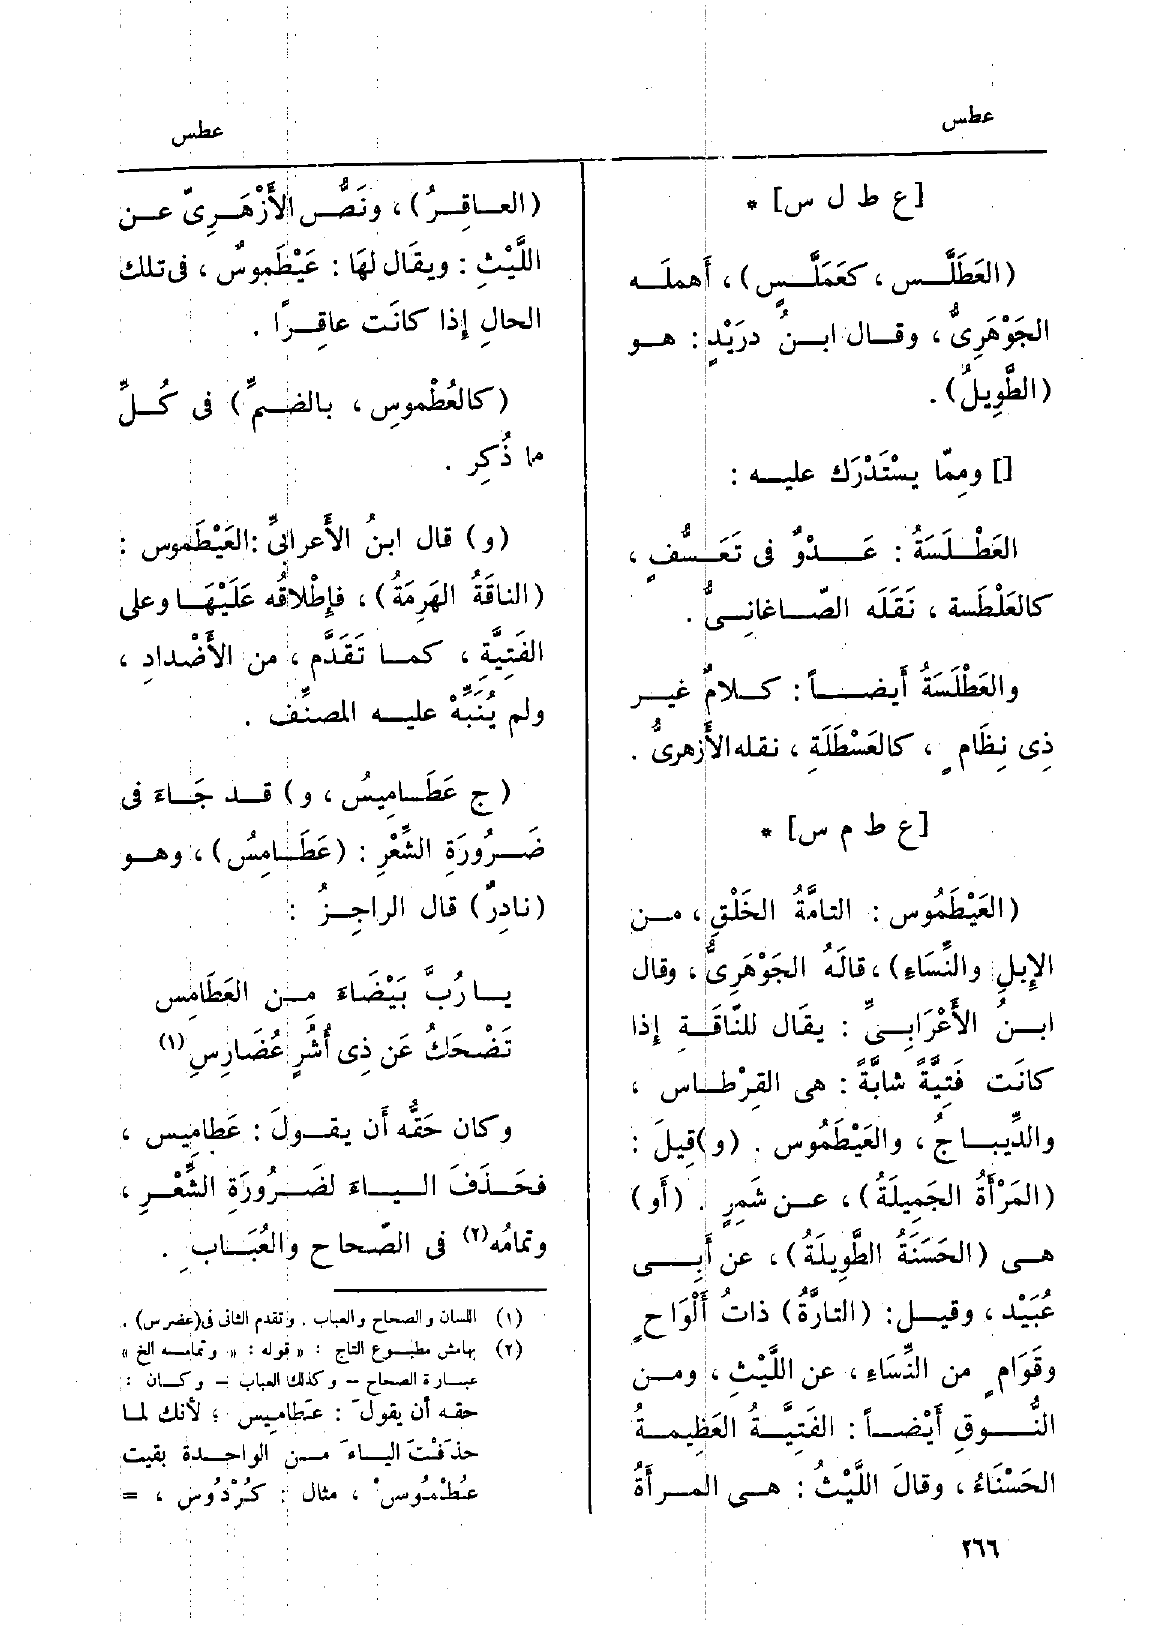 عطس
عطس
[ع ط ل س] *
(العَطَلَّس ، كعَمَلَّسٍ) ، أَهملَه
الجَوْهَرِىُّ ، وقال ابنُ درَيْدٍ : هو
(الطَّوِيلُ) .
[] ومِمّا يسْتَدْرَك عليه :
العَطْلَسَةُ : عَدْوٌ فى تَعَسُّفٍ ،
كالعَلْطَسة ، نَقَلَه الصّاغانِىُّ .
والعَطْلَسَةُ أَيضاً : كلامٌ غير
ذِى نِظَامٍ ، كالعَسْطَلَةِ ، نقله الأَزهرىُّ .
[ع ط م س] *
(العَيْطَمُوس : التامَّةُ الخَلْقِ ، من
الإِبِلِ والنِّسَاءِ) ، قالَهُ الجَوْهَرِىُّ ، وقال
ابنُ الأَعْرَابِىِّ : يقَال للنَّاقَةِ إِذا
كانَت فَتِيَّةً شابَّةً : هى القِرْطاس ،
والدِّيباجُ ، والعَيْطَمُوس . (و)قِيلَ :
(المَرْأَةُ الجَمِيلَةُ) ، عن شَمِرٍ . (أَو)
هى (الحَسَنَةُ الطَّوِيلَةُ) ، عن أَبِى
عُبَيْد ، وقيل : (التارَّةُ) ذاتُ أَلْوَاحٍ
وقَوَامٍ من النِّسَاءِ ، عن اللَّيْثِ ، ومن
النُّوقِ أَيْضاً : الفَتِيَّةُ العَظِيمةُ
الحَسْنَاءُ ، وقالَ اللَّيْثُ : هى المرأَةُ
(العاقِرُ) ، ونَصُّ الأَزْهَرِىّ عن
اللَّيْثِ : ويقَال لهَا : عَيْطَموسٌ ، فى تلك
الحالِ إِذا كانَت عاقِرًا .
(كالعُطْموسِ ، بالضمِّ) فى كُلِّ
ما ذُكِر .
(و) قال ابنُ الأَعرابىِّ : العَيْطَموس :
(الناقَةُ الهَرِمَةُ) ، فإِطْلاقُه عَلَيْهَا وعلى
الفَتِيَّةِ ، كما تَقَدَّم ، من الأَضْدادِ ،
ولم يُنَبِّهْ عليه المصنِّف .
(ج عَطَامِيسُ ، و) قد جَاءَ فى
ضَرُورَةِ الشِّعْرِ : (عَطَامِسُ) ، وهو
(نادِرٌ) قال الراجِزُ :
يارُبَّ بَيْضَاءَ مِن العَطَامِس
تَضْحَكُ عَن ذِى أُشُرٍ عُضَارِسِ (١)
وكان حَقُّه أَن يقولَ : عَطامِيس ،
فحَذَفَ الياءَ لضَرُورَةِ الشِّعْرِ ،
وتمامُه (٢) فى الصّحاح والعُبَابِ .
(١) اللسان والصحاح والعباب . وتقدم الثانى فى (عضرس) .
(٢) بهامش مطبوع التاج : «قوله : «وتمامه الخ»
عبارة الصحاح – وكذلك العباب – وكان :
حقه أن يقولَ : عَطاميس ؛ لأنك لما
حذَفْتَ الياءَ من الواحدة بقيت
عَطْمُوس ، مثال : كُرْدُوس ، =
٢٦٦